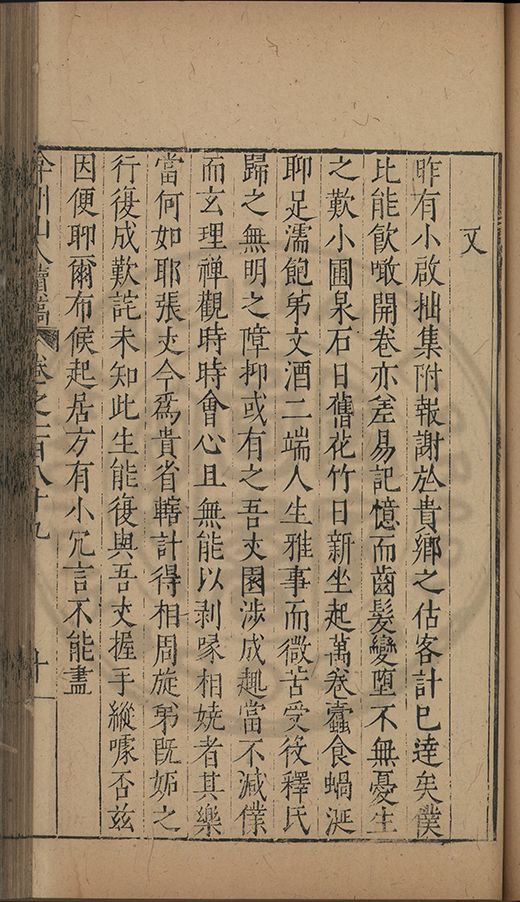 又
昨有小啟拙集附報謝於貴鄉之估客計已達矣僕
比能飲噉開卷亦差易記憶而齒髮變墮不無憂生
之歎小圃泉石日舊花竹日新坐起萬卷蠹食蝸涎
聊足濡飽弟文酒二端人生雅事而微苦受役釋氏
歸之無明之障抑或有之吾丈園涉成趣當不減僕
而玄理禪觀時時會心且無能以剥喙相嬈者其樂
當何如耶張丈今爲貴省轄計得相周旋弟既姊之
行復成歎詫未知此生能復與吾丈握手縱噱否兹
因便聊爾布候起居方有小冗言不能盡
弇州山人續稿 卷之一百八十九 十